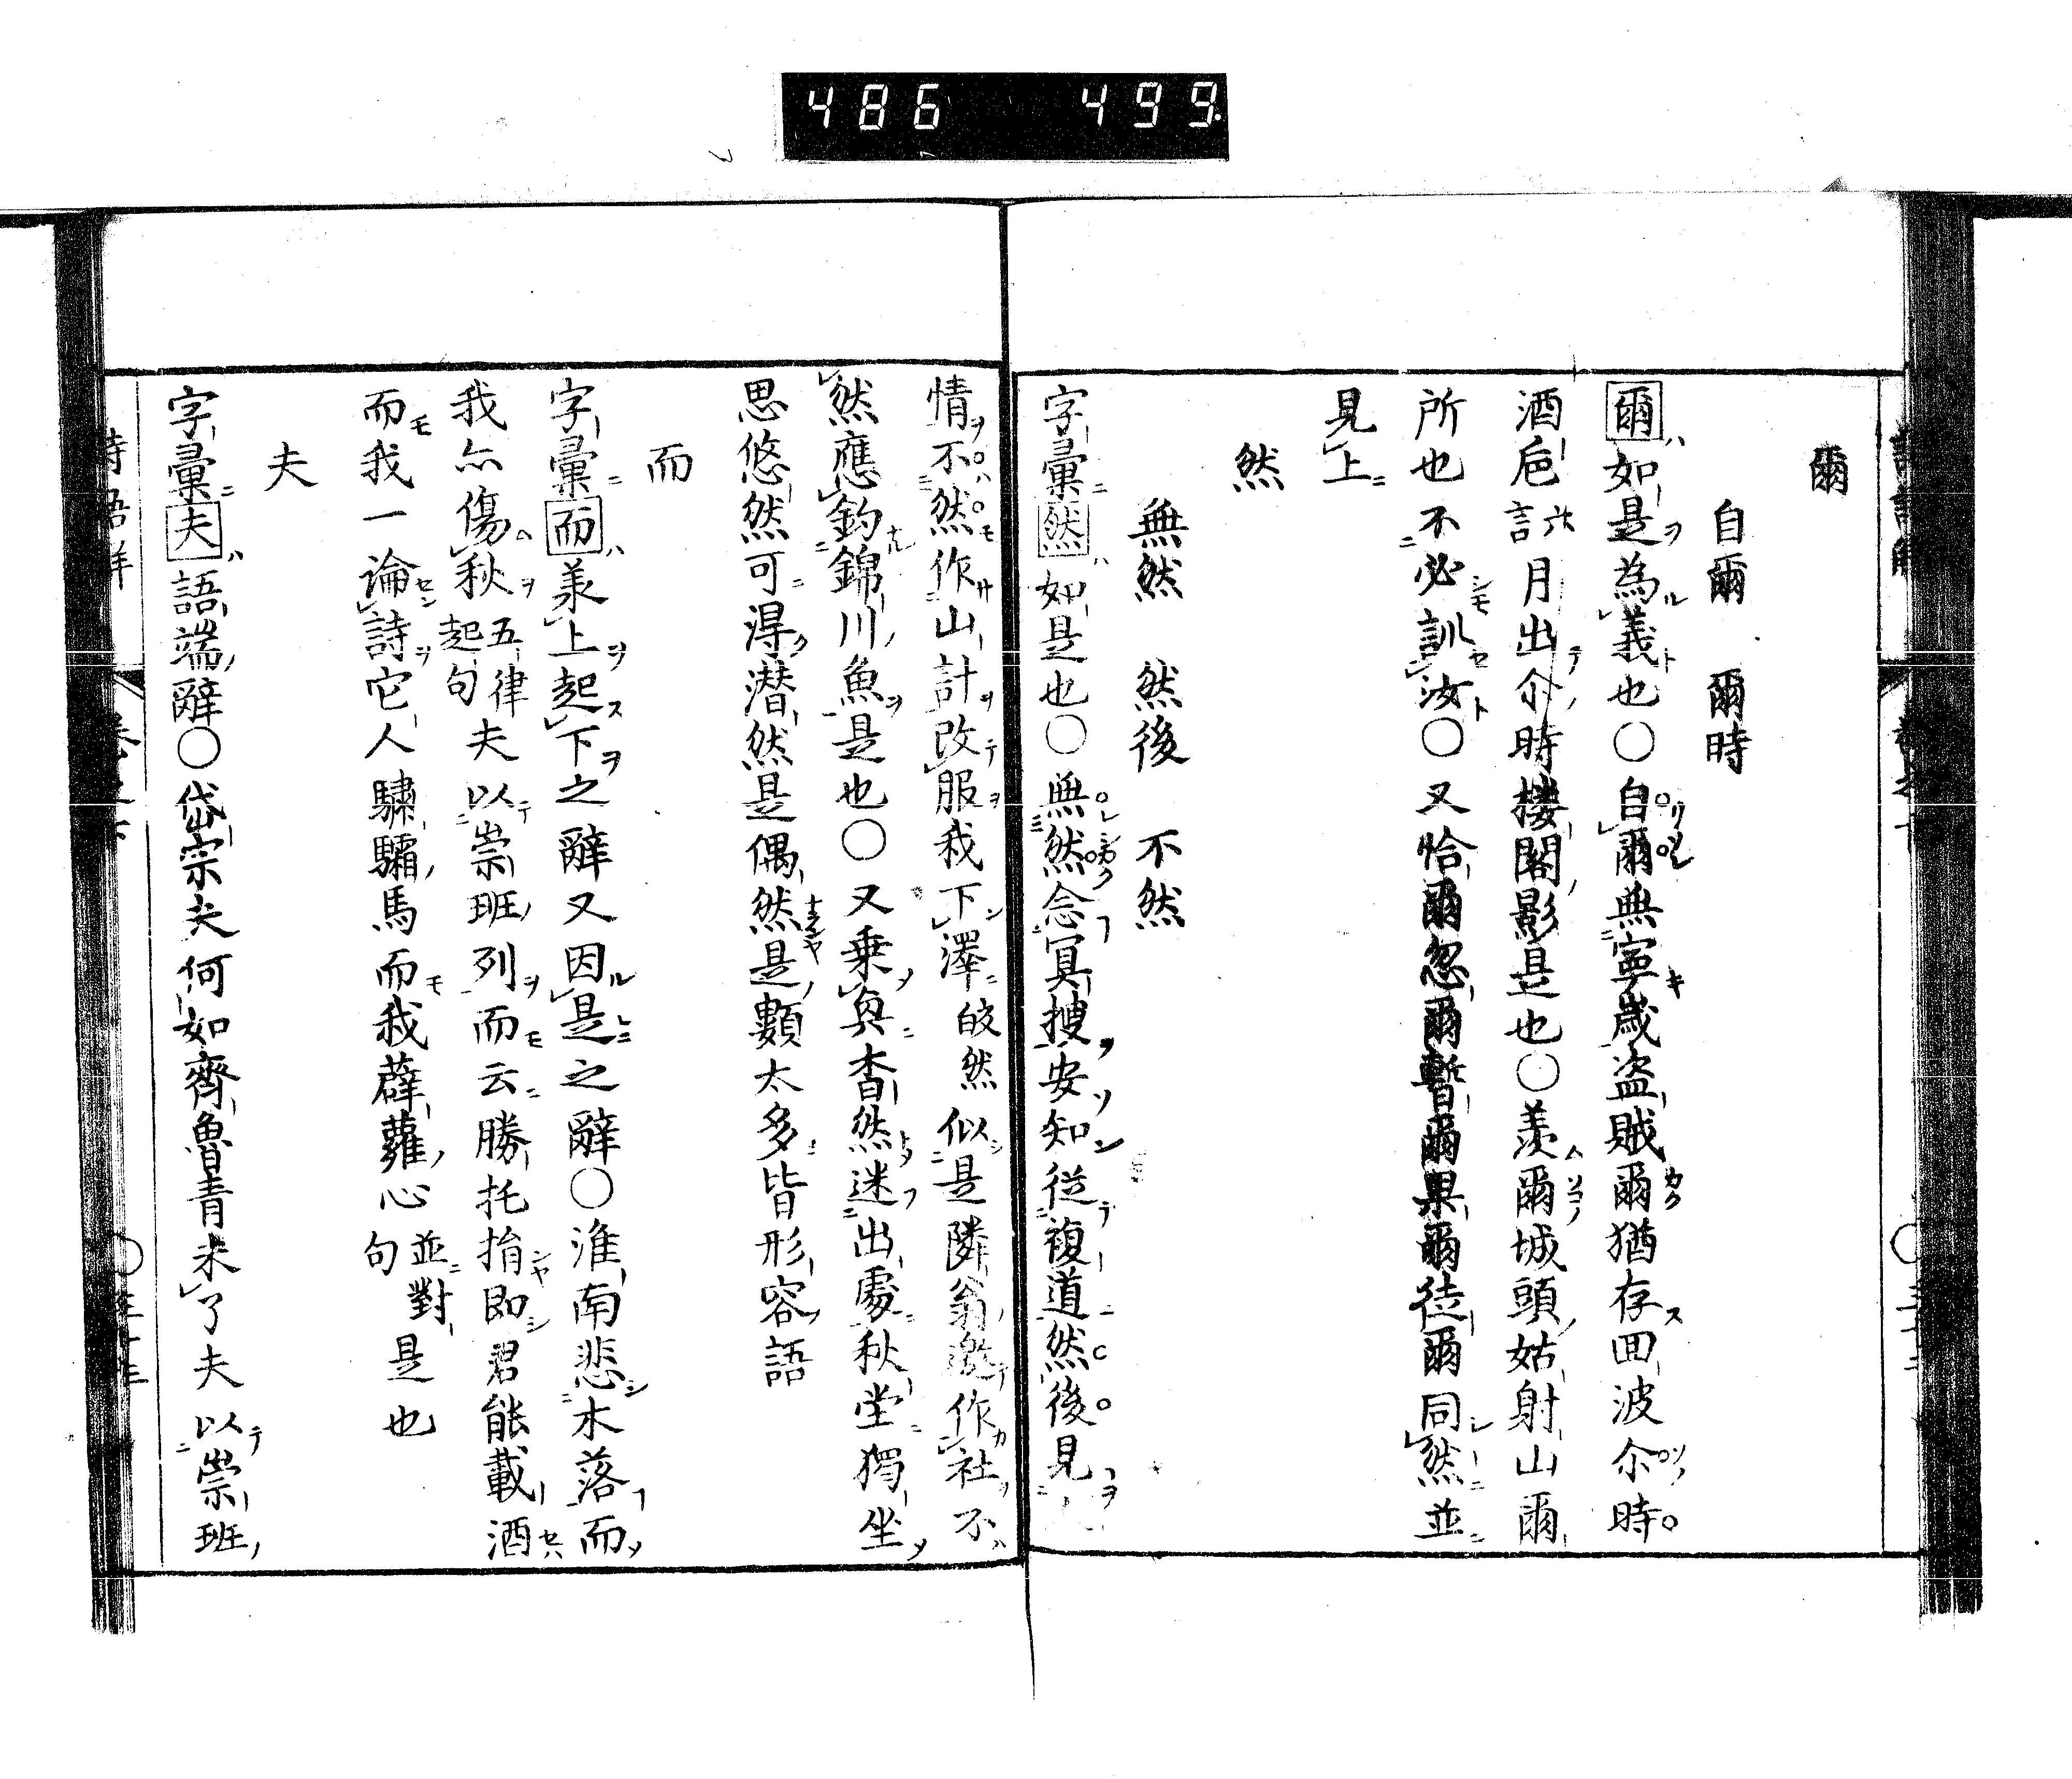 486 499
爾
自爾 爾時
爾如是為義也○自爾無寧歲盜賊爾猶存回波尒時
酒巵詩月出尒時樓閣影是也○羨爾城頭姑射山爾
所也不必訓汝○又恰爾忽爾暫爾果爾徒爾同然並
見上
然
無然 然後 不然
字彙然如是也○無然念冥搜安知從複道然後見
情不然作山計改服我下澤皎然似是隣翁邀作社不
然應釣錦川魚是也○又乗興杳然迷出處秋堂獨坐
思悠然可淂潜然是偶然是數太多皆形容語
而
字彙而羕上起下之辭又因是之辭○淮南悲木落而
我亦傷秋五律起句夫以崇班列而云勝托捐即君能載酒
而我一論詩它人驌驦馬而我薜蘿心並對句是也
夫
字彙夫語端辭○岱宗夫何如齊魯青未了夫以崇班